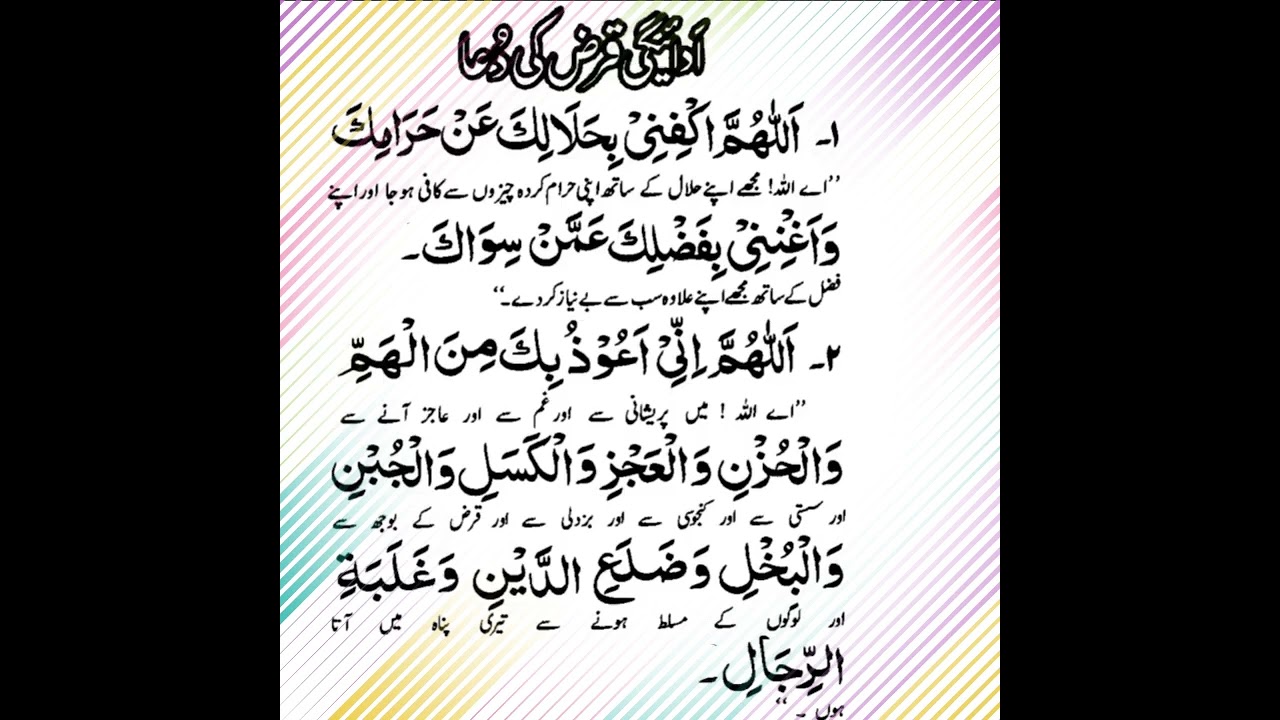 اَدائیگی قرض کی دُعا
۱۔ اَللّٰهُمَّ اکْفِنِیْ بِحَلَالِكَ عَنْ حَرَامِكَ
’’اے اللہ! مجھے اپنے حلال کے ساتھ اپنی حرام کردہ چیزوں سے کافی ہو جا اور اپنے
وَاَغْنِنِیْ بِفَضْلِكَ عَمَّنْ سِوَاكَ۔
فضل کے ساتھ مجھے اپنے علاوہ سب سے بے نیاز کر دے۔‘‘
۲۔ اَللّٰهُمَّ اِنِّیْ اَعُوْذُ بِكَ مِنَ الْهَمِّ
’’اے اللہ ! میں پریشانی سے اور غم سے اور عاجز آنے سے
وَالْحُزْنِ وَالْعَجْزِ وَالْکَسَلِ وَالْجُبْنِ
اور سستی سے اور کنجوسی سے اور بزدلی سے اور قرض کے بوجھ سے
وَالْبُخْلِ وَضَلَعِ الدَّیْنِ وَغَلَبَةِ
اور لوگوں کے مسلط ہونے سے تیری پناہ میں آتا
الرِّجَالِ۔
ہوں ۔‘‘